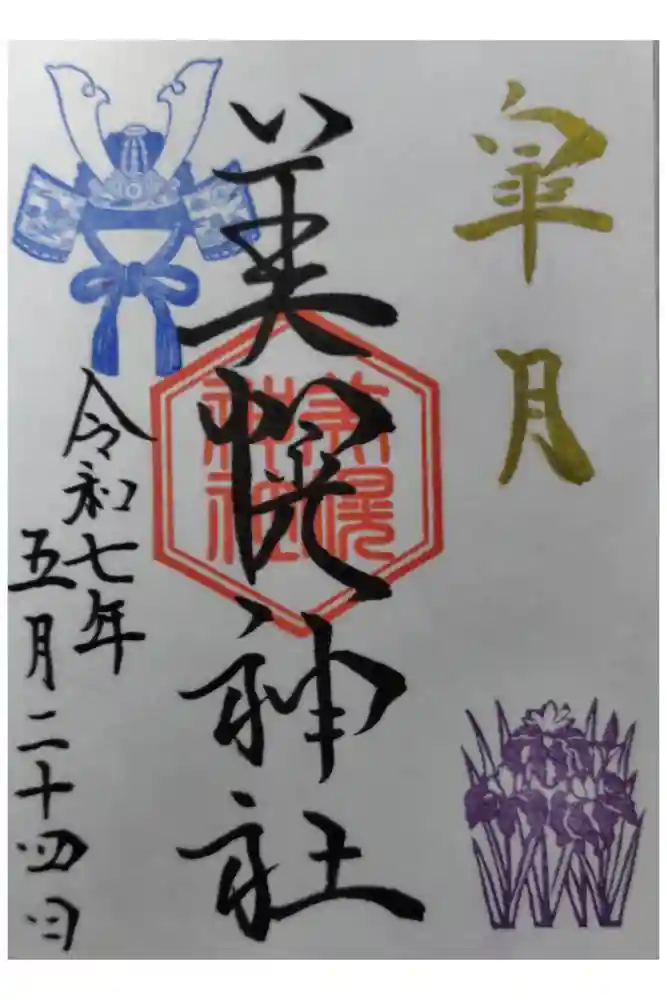 皐月
美幌神社
美幌神社
令和七年
五月二十四日